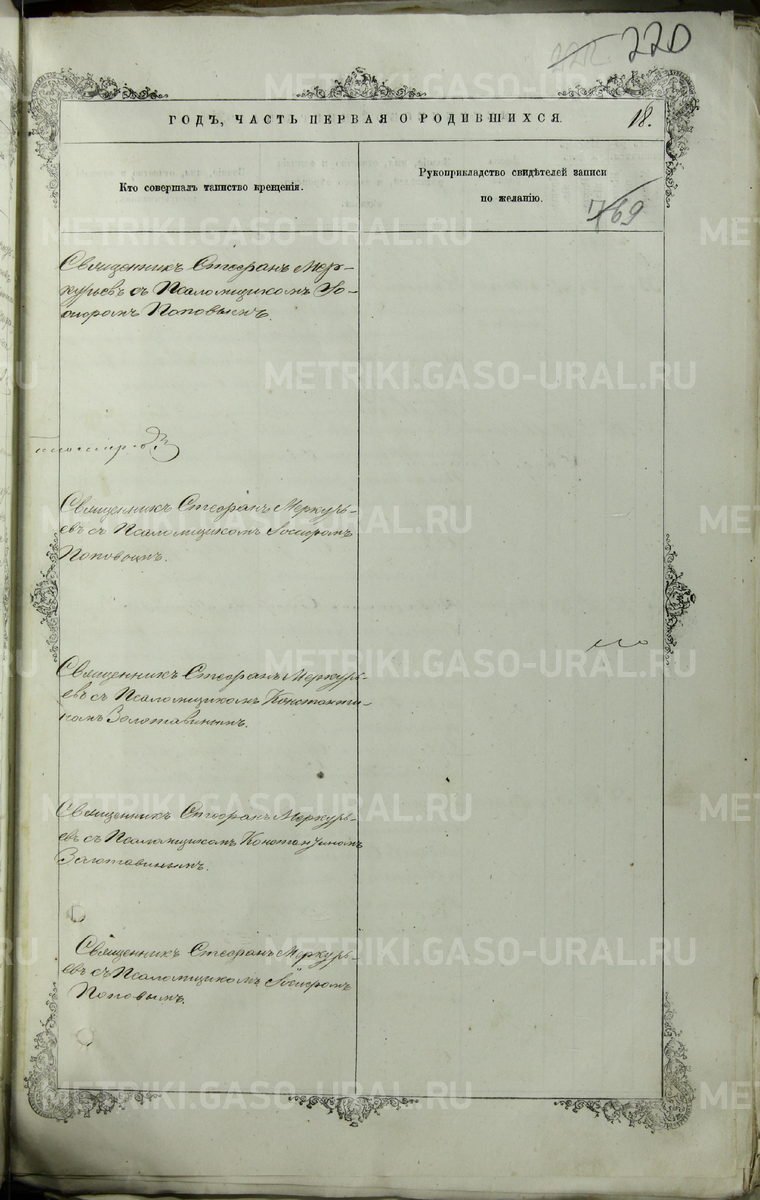 220
ГОДЪ, ЧАСТЬ ПЕРВАЯ О РОДИВШИХСЯ.
18.
Кто совершалъ таинство крещенія.
Рукоприкладство свидѣтелей записи
по желанію.
169
Священникъ Стефанъ Мер-
курьевъ съ Псаломщикомъ
Поповымъ.
Священникъ Стефанъ Меркурь-
евъ съ Псаломщикомъ
Поповымъ.
Священникъ Стефанъ Меркурь-
евъ съ Псаломщикомъ Константи-
номъ Золотавинымъ.
Священникъ Стефанъ Меркурь-
евъ съ Псаломщикомъ Константиномъ
Золотавинымъ.
Священникъ Стефанъ Меркурь-
евъ съ Псаломщикомъ
Поповымъ.
METRIKI.GASO-URAL.RU